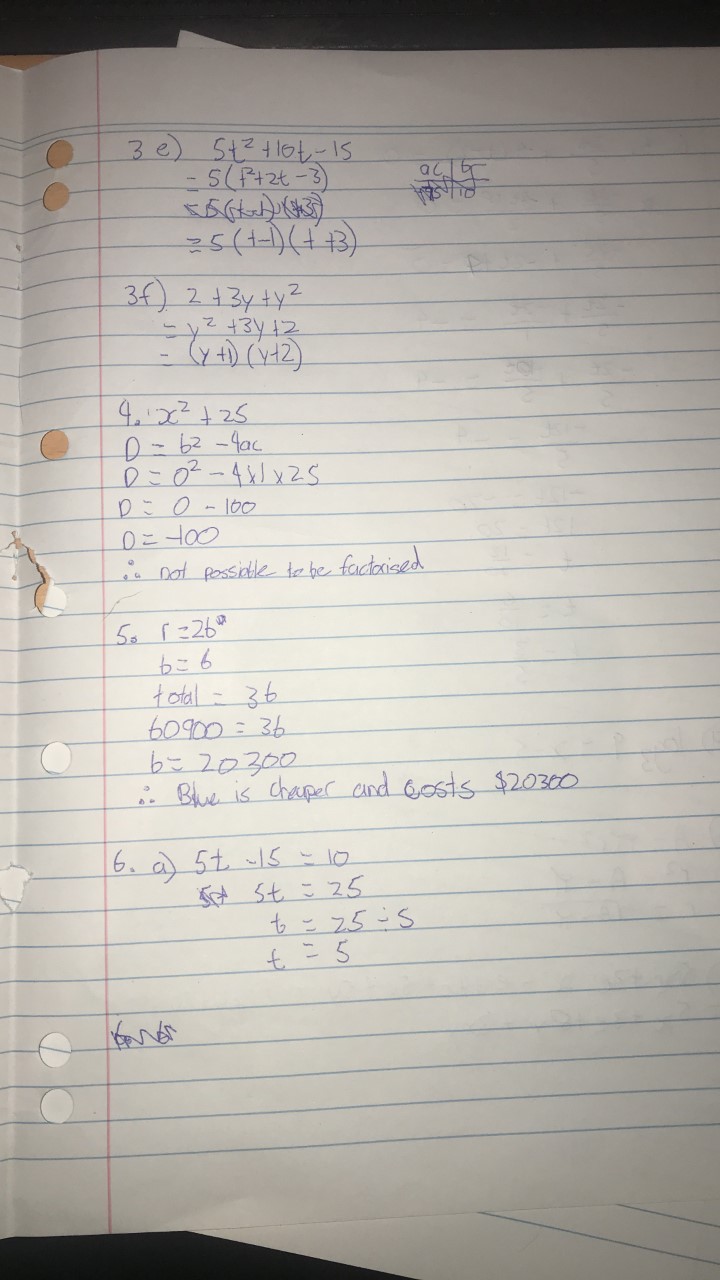 3 e) 5t² + 10t - 15
= 5(t²+2t-3)
= 5(t-1)(t+3)
ac | b
3f) 2 + 3y + y²
= y² + 3y + 2
= (y+1)(y+2)
4. x² + 25
D = b² - 4ac
D = 0² - 4x1x25
D = 0 - 100
D = -100
∴ not possible to be factorised
5. r = 2b
b = b
total = 3b
60900 = 3b
b = 20300
∴ Blue is cheaper and costs $20300
6. a) 5t - 15 = 10
5t = 25
t = 25 ÷ 5
t = 5